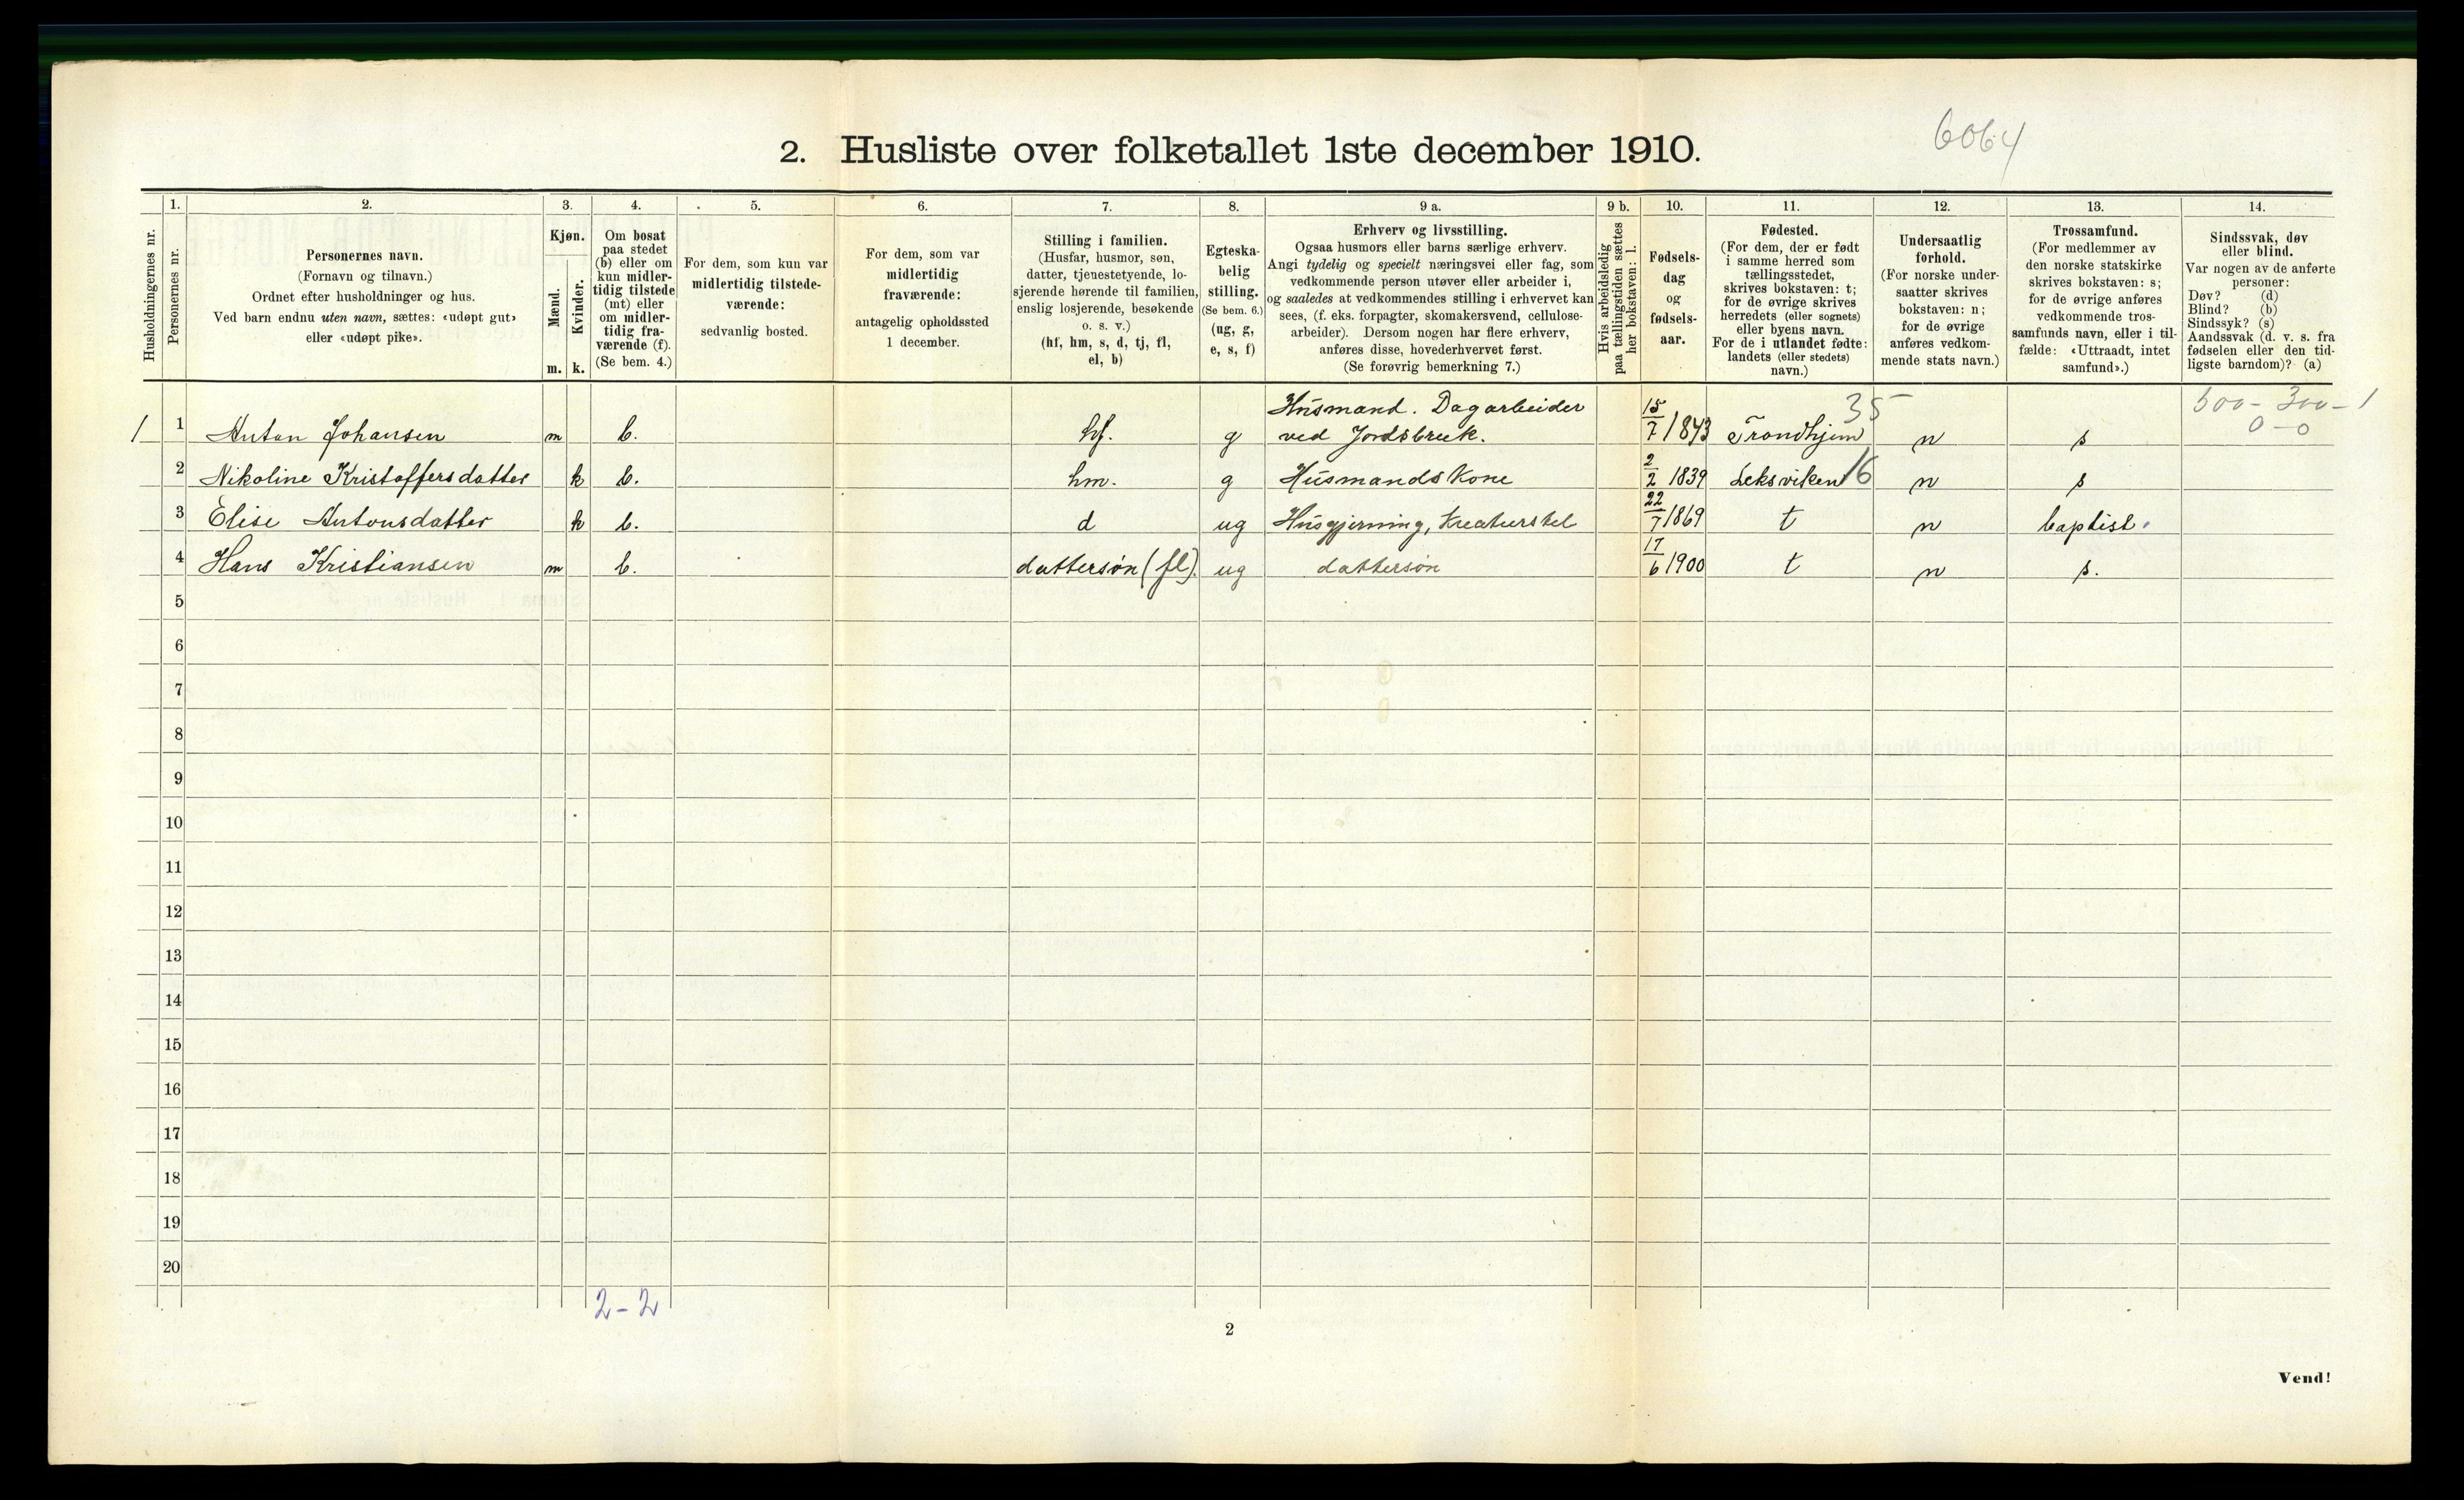 6064
2. Husliste over folketallet 1ste december 1910.
1. 2. 3. 4. 5. 6. 7. 8. 9 a. 9 b. 10. 11. 12. 13. 14.
Husholdningernes nr.
Personernes nr.
Personernes navn.
(Fornavn og tilnavn.)
Ordnet efter husholdninger og hus.
Ved barn endnu uten navn, sættes: «udøpt gut»
eller «udøpt pike».
Kjøn.
Mænd.
Kvinder.
m. k.
Om bosat
paa stedet
(b) eller om
kun midler-
tidig tilstede
(mt) eller
om midler-
tidig fra-
værende (f).
(Se bem. 4.)
For dem, som kun var
midlertidig tilstede-
værende:
sedvanlig bosted.
For dem, som var
midlertidig
fraværende:
antagelig opholdssted
1 december.
Stilling i familien.
(Husfar, husmor, søn,
datter, tjenestetyende, lo-
sjerende hørende til familien,
enslig losjerende, besøkende
o. s. v.)
(hf, hm, s, d, tj, fl,
el, b)
Egteska-
belig
stilling.
(Se bem. 6.)
(ug, g,
e, s, f)
Erhverv og livsstilling.
Ogsaa husmors eller barns særlige erhverv.
Angi tydelig og specielt næringsvei eller fag, som
vedkommende person utøver eller arbeider i,
og saaledes at vedkommendes stilling i erhvervet kan
sees, (f. eks. forpagter, skomakersvend, cellulose-
arbeider). Dersom nogen har flere erhverv,
anføres disse, hovederhvervet først.
(Se forøvrig bemerkning 7.)
Hvis arbeidsledig
paa tællingstiden sættes
her bokstaven: l.
Fødsels-
dag
og
fødsels-
aar.
Fødested.
(For dem, der er født
i samme herred som
tællingsstedet,
skrives bokstaven: t;
for de øvrige skrives
herredets (eller sognets)
eller byens navn.
For de i utlandet fødte:
landets (eller stedets)
navn.)
Undersaatlig
forhold.
(For norske under-
saatter skrives
bokstaven: n;
for de øvrige
anføres vedkom-
mende stats navn.)
Trossamfund.
(For medlemmer av
den norske statskirke
skrives bokstaven: s;
for de øvrige anføres
vedkommende tros-
samfunds navn, eller i til-
fælde: «Uttraadt, intet
samfund».)
Sindssvak, døv
eller blind.
Var nogen av de anførte
personer:
Døv? (d)
Blind? (b)
Sindssyk? (s)
Aandssvak (d. v. s. fra
fødselen eller den tid-
ligste barndom)? (a)
Husmand. Dagarbeider 15 35 500-300-1
1 1 Anton Johansen m b. hf. g ved Jordsbruk. 7 1843 Trondhjem n s 0-0
2 Nikoline Kristoffersdatter k b. hm. g Husmandskone 2/2 1839 Leksviken 16 n s
3 Elise Antonsdatter k b. d ug Husgjerning, Kreaturstel 22/7 1869 t n baptist.
4 Hans Kristiansen m b. dattersøn (fl). ug dattersøn 17/6 1900 t n s.
5
6
7
8
9
10
11
12
13
14
15
16
17
18
19
20
2-2
2
Vend!